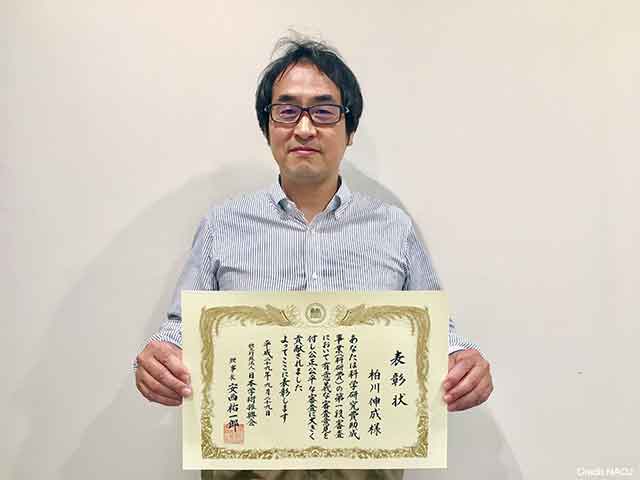 表彰状
柏川伸成様
あなたは科学研究費助成
事業(科研費)の第一段審査
において有意義な審査意見を
付し公正公平な審査に大きく
貢献されました
よってここに表彰します
平成二十九年九月二十九日
独立行政法人日本学術振興会
理事長 安西祐一郎
Credit NAOJ